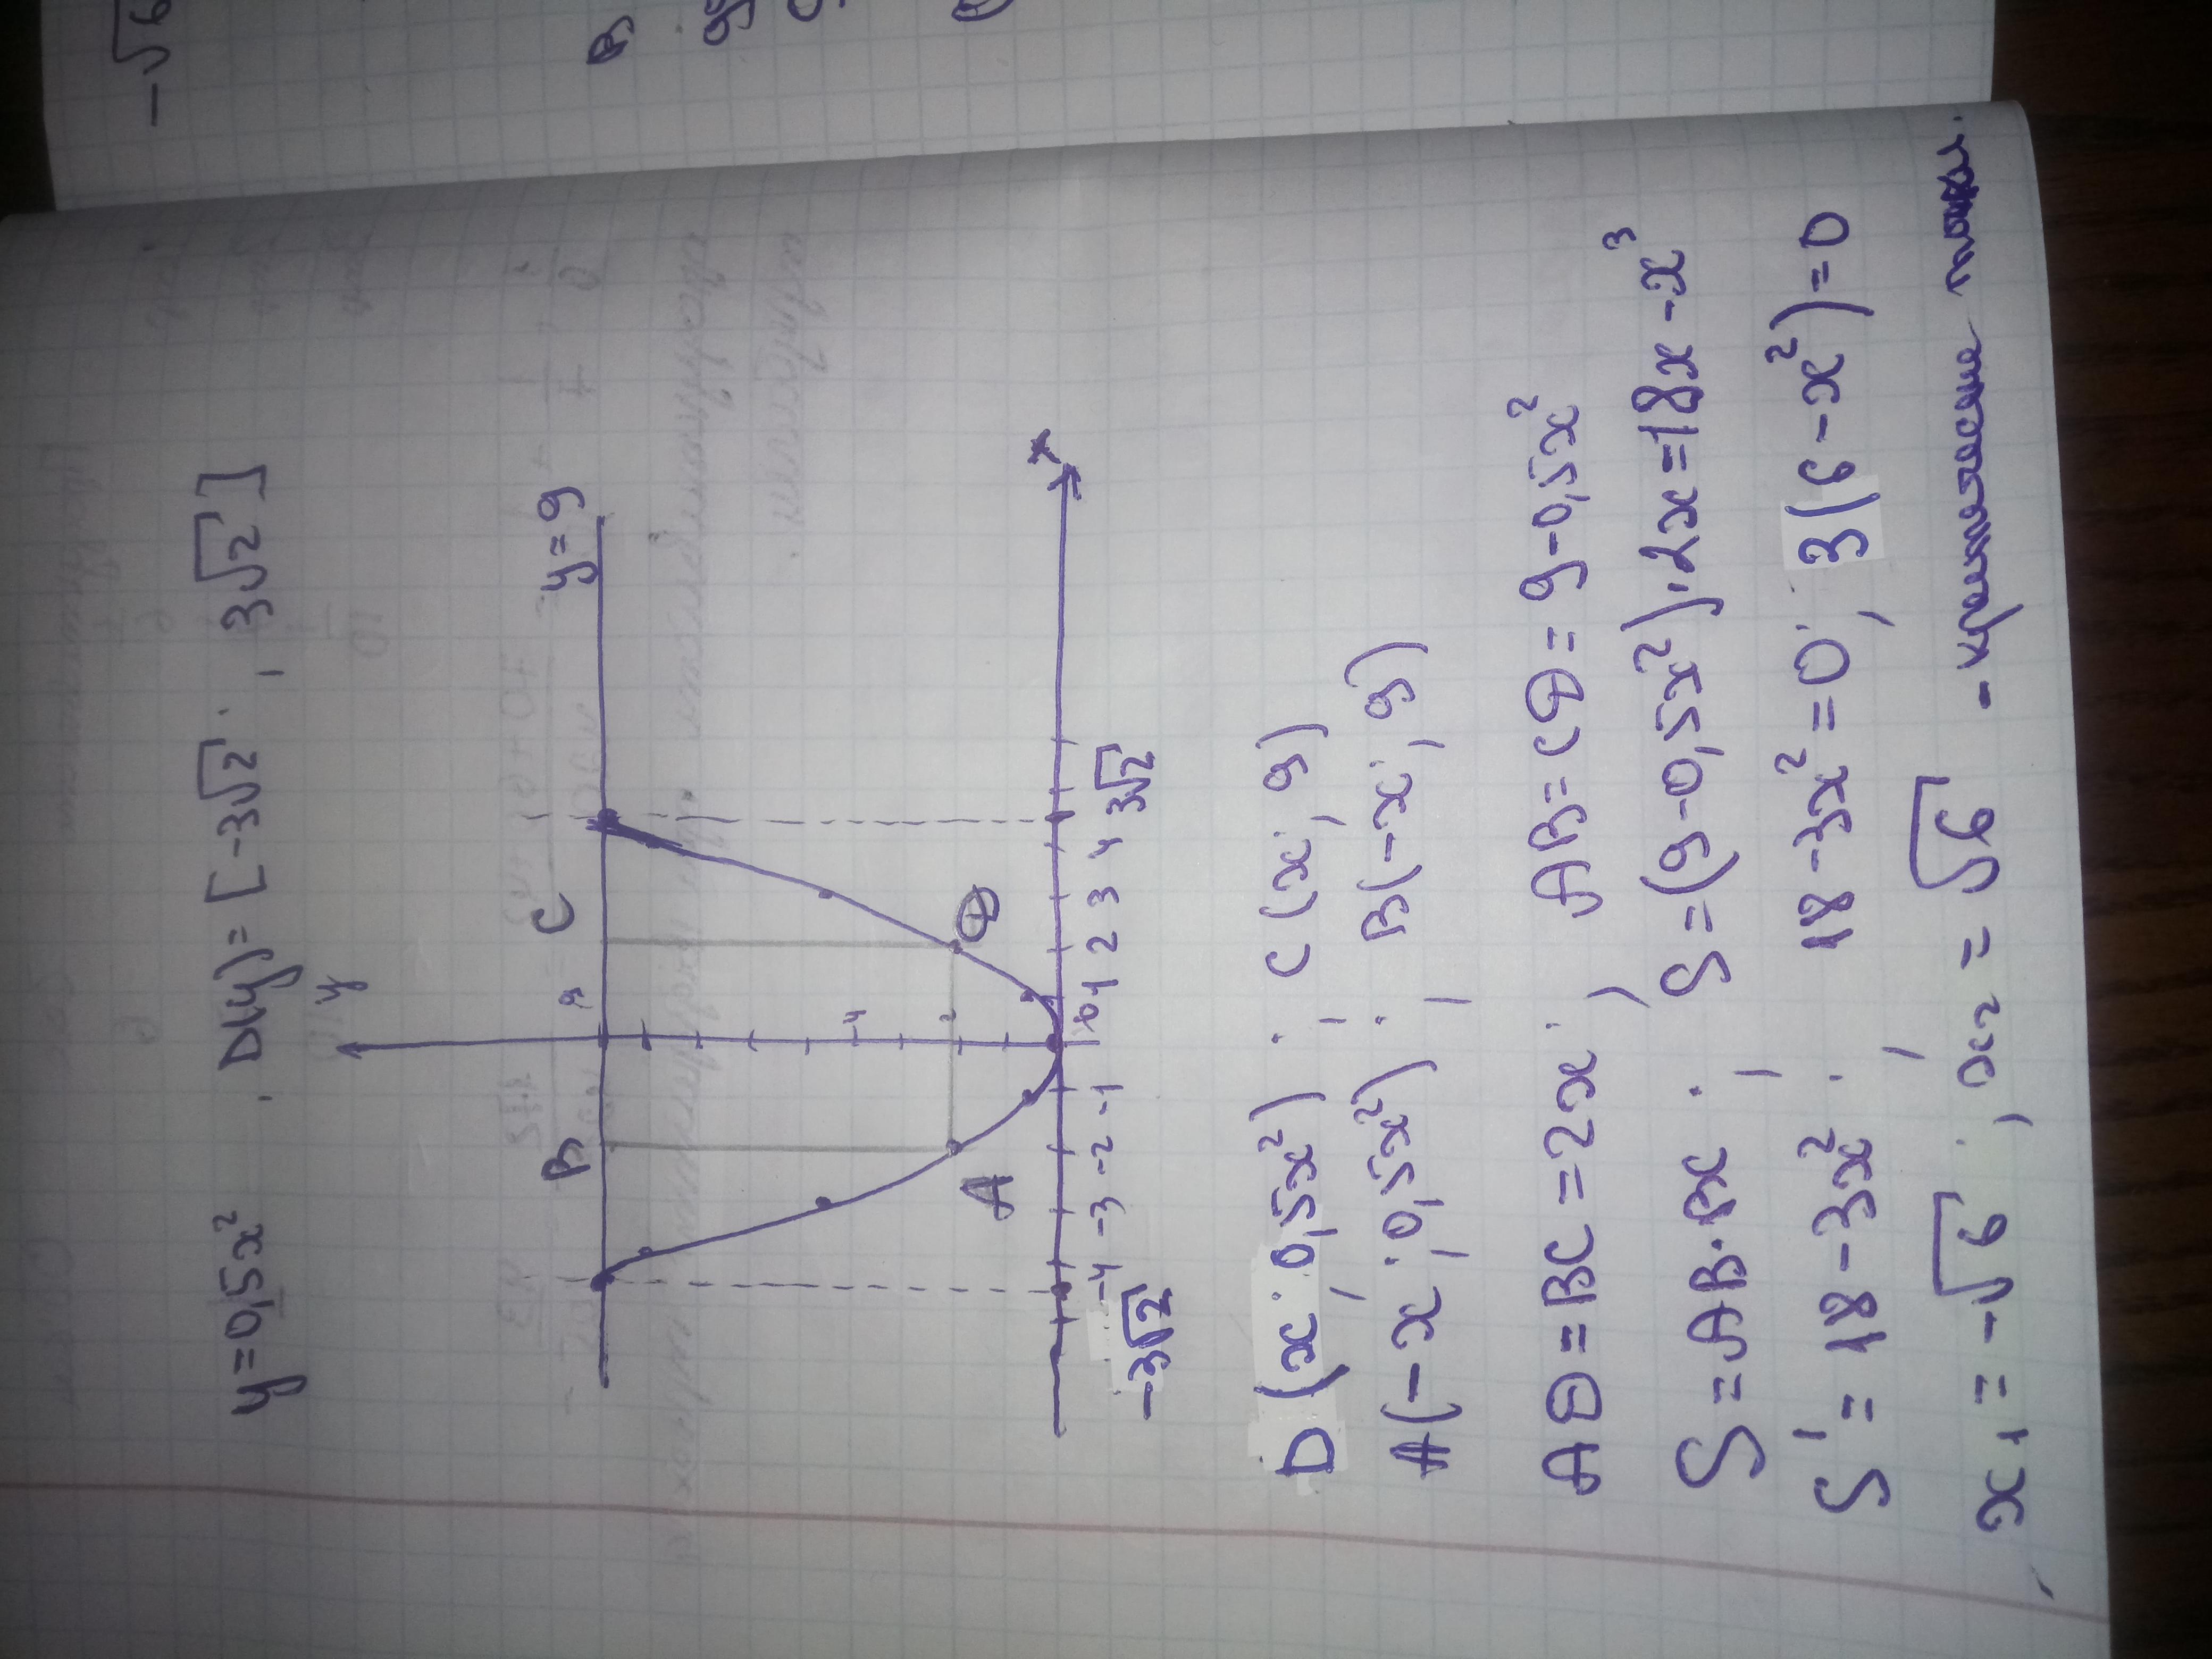 y=0,5x² . D(y)=[-3√2 ; 3√2]
y
B 9 C y=9
4
2
A D
-4 -3 -2 -1 0 1 2 3 4 x
-3√2 3√2
D(x; 0,5x²) ; C(x; 9)
A(-x; 0,5x²) ; B(-x; 9)
AD=BC=2x ; AB=CD=9-0,5x²
S=AB·BC ; S=(9-0,5x²)·2x=18x-x³
S'=18-3x² ; 18-3x²=0 ; 3(6-x²)=0
x₁=-√6 ; x₂=√6 - критические точки.
-√6
B